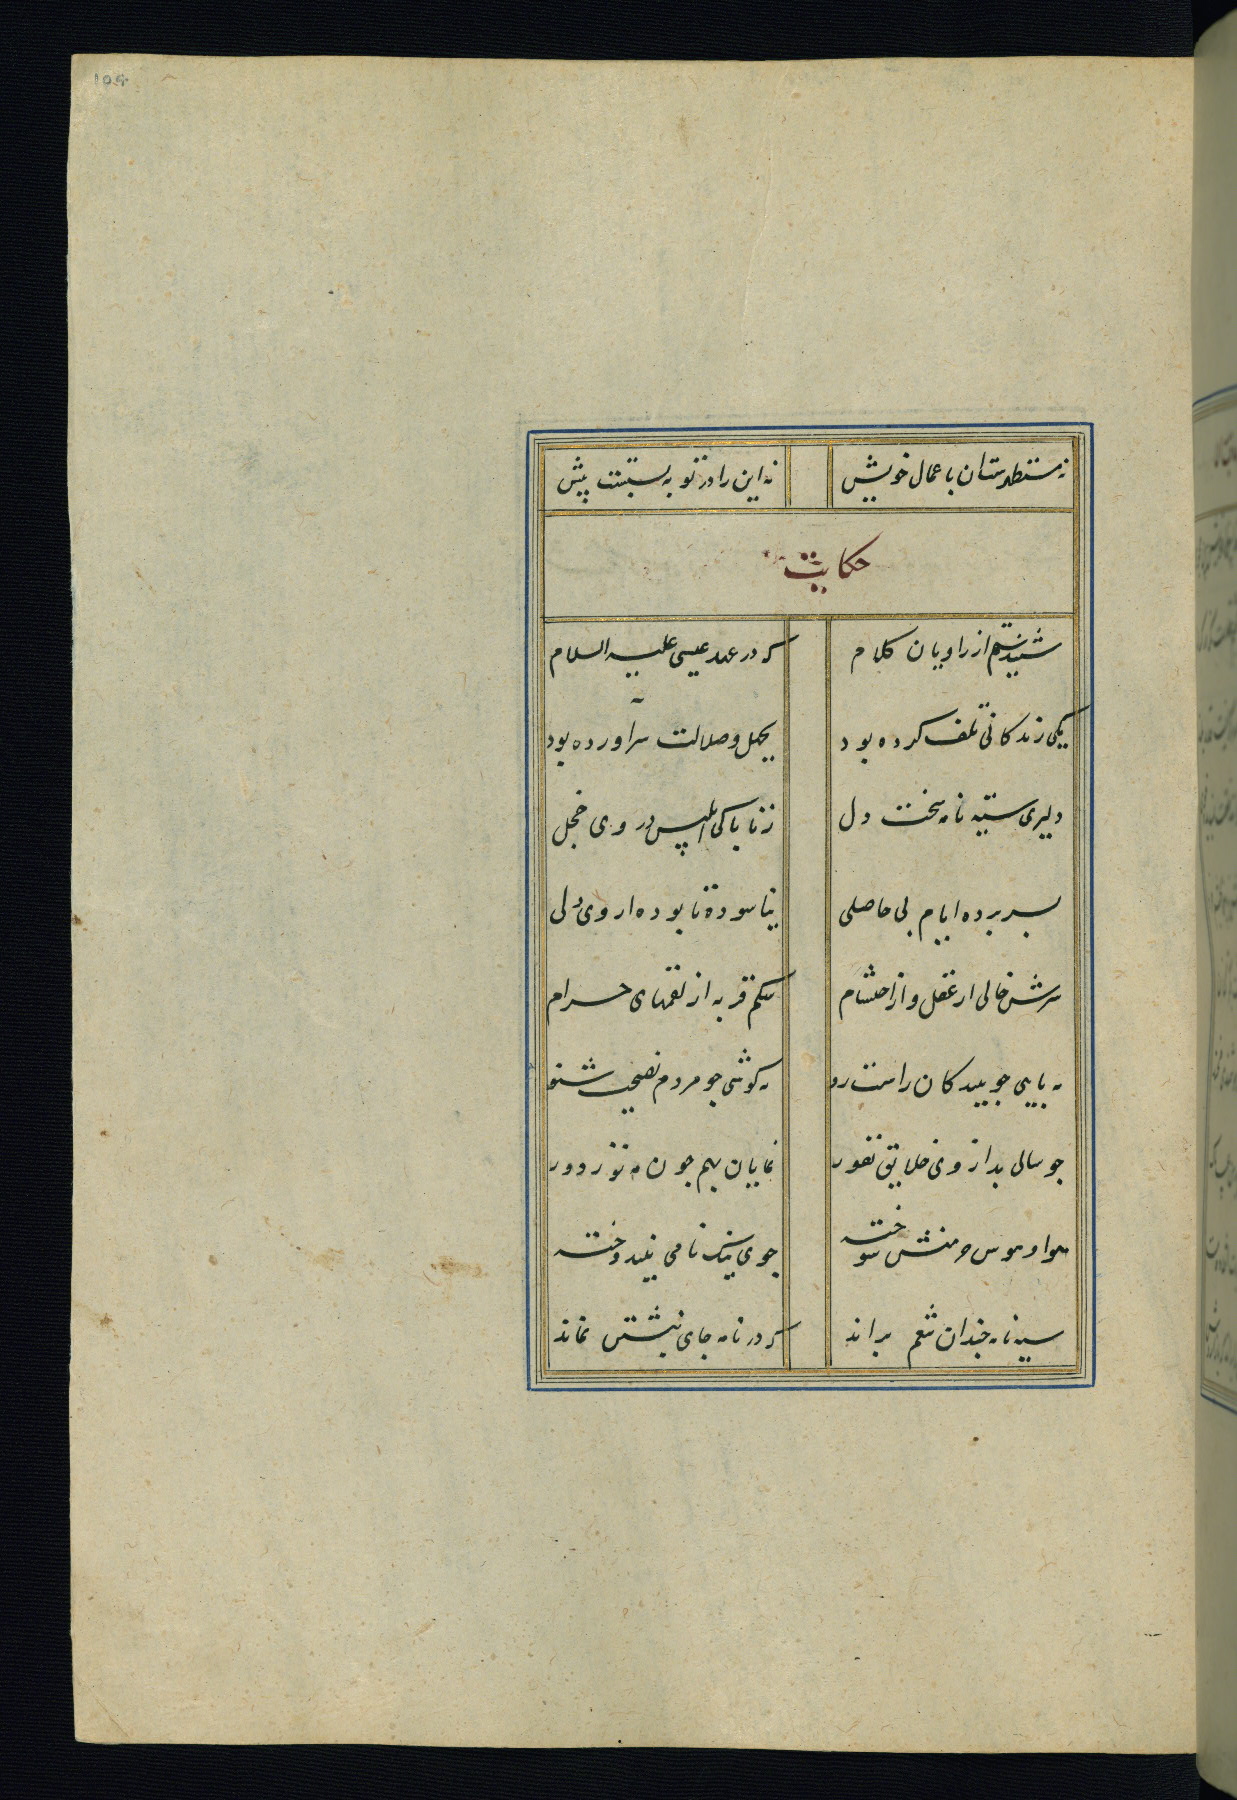 نه مستظهرست آن باعمال خویش نه این را در توبه بستست پیش
حکایت
شنیدستم از راویان کلام که در عهد عیسی علیه السلام
یکی زندکانی تلف کرده بود بجهل وضلالت سرآورده بود
دلیری سیه نامه سخت دل زناباکی ابلیس در وی خجل
بسر برده ایام بی حاصلی نیاسوده تا بوده از وی دلی
سرش خالی از عقل و از احتشام شکم فربه از لقمهای حرام
نه بایی جو بیندکان راست رو نه کوشی جو مردم نصیحت شنو
جو سالی بد از وی خلایق نفور نمایان بهم جون مه نو ز دور
هوا و هوس خرمنش سوخته جوی نیک نامی نیندوخته
سیه نامه جندان تنعم براند که در نامه جای نبشتن نماند